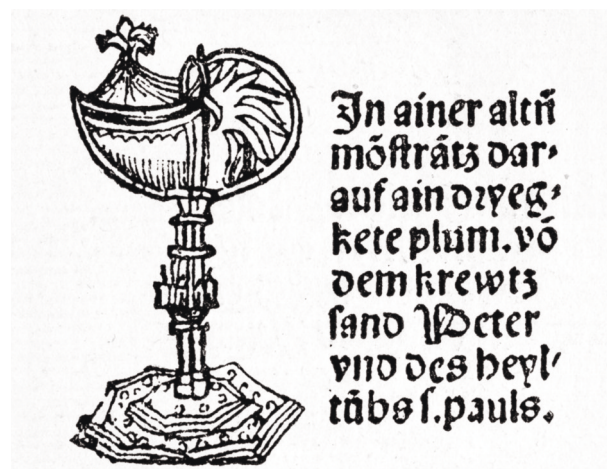 In ainer altñ
mõſtrãtz dar⸗
auf ain dryeg⸗
kete plum. võ
dem krewtz
ſand Peter
vnd des heyl⸗
tũbs ſ. pauls.